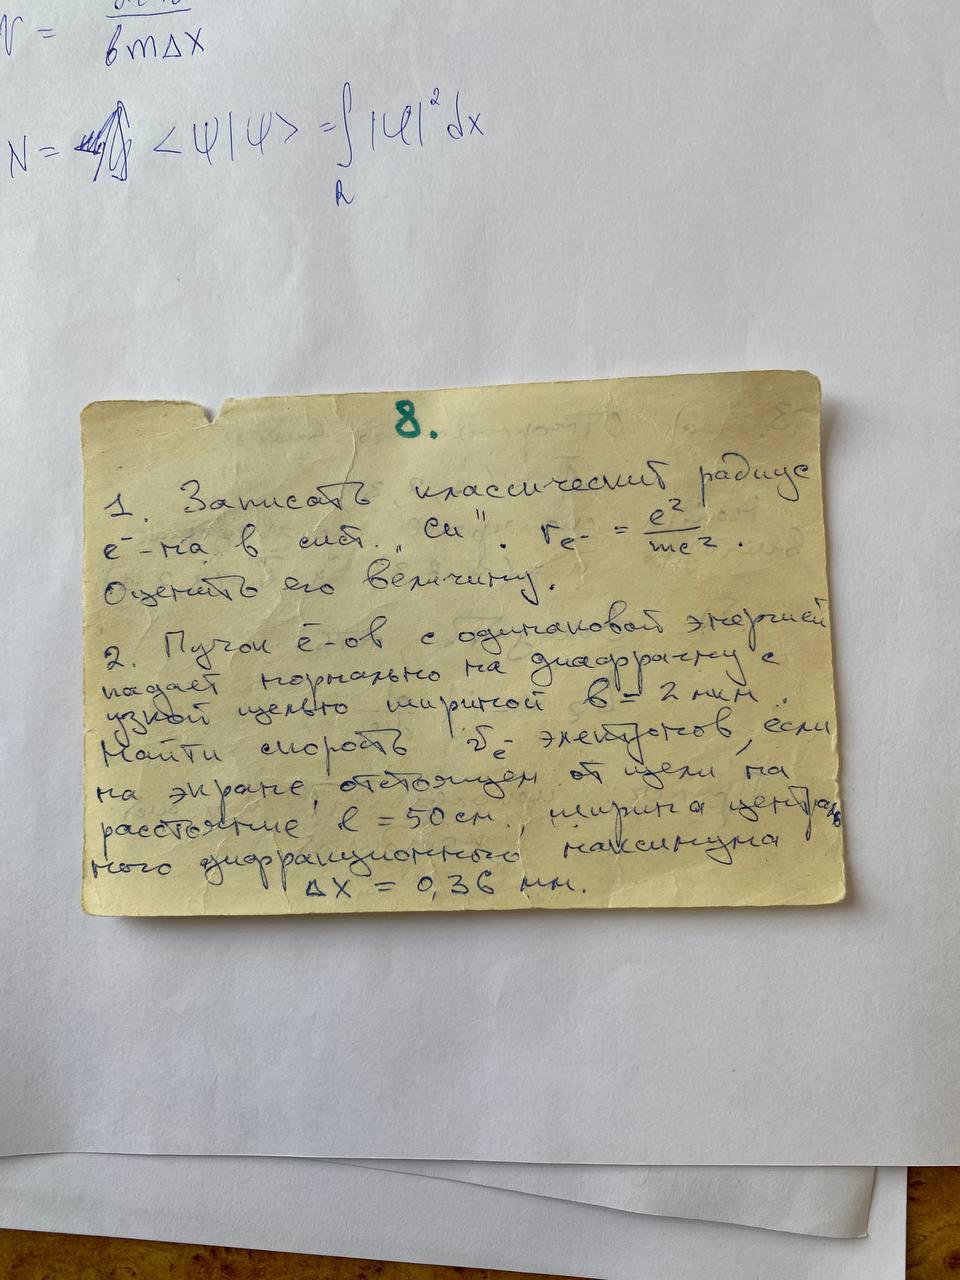 v =
b m Δx
N = <ψ|ψ> = ∫ |ψ|² dx
R
8.
1. Записать классический радиус
e⁻-на в сист. „Си". r_e- = e²/mc².
Оценить его величину.
2. Пучок e⁻-ов с одинаковой энергией
падает нормально на диафрагму с
узкой щелью шириной b = 2 мкм.
Найти скорость v_e- электронов, если
на экране, отстоящем от щели на
расстояние l = 50 см., ширина централь
ного дифракционного максимума
Δx = 0,36 мм.